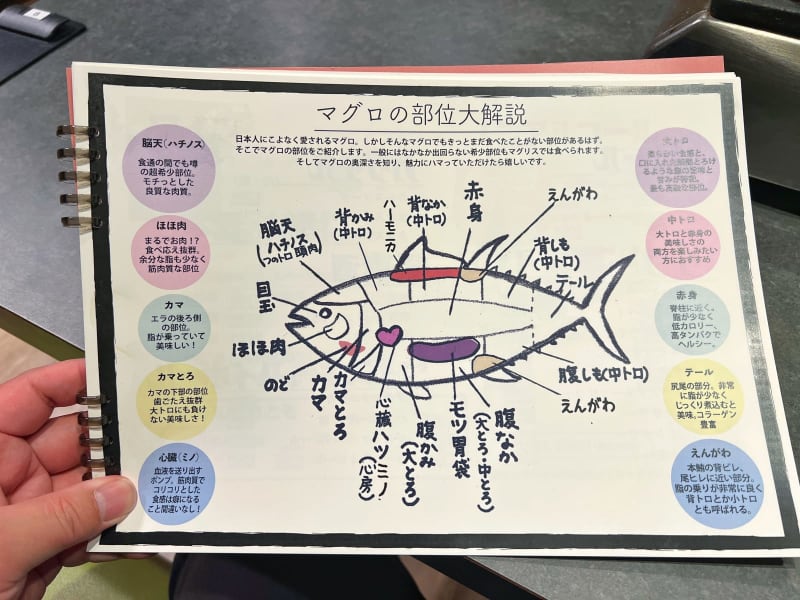 マグロの部位大解説
日本人にこよなく愛されるマグロ。しかしそんなマグロでもきっとまだ食べたことがない部位があるはず。
そこでマグロの部位をご紹介します。一般にはなかなか出回らない希少部位もマグリスでは食べられます。
そしてマグロの奥深さを知り、魅力にハマっていただけたら嬉しいです。
脳天(ハチノス)
食通の間でも噂
の超希少部位。
モチっとした
良質な肉質。
ほほ肉
まるでお肉!?
食べ応え抜群、
余分な脂も少なく
筋肉質な部位
カマ
エラの後ろ側
の部位。
脂が乗っていて
美味しい!
カマとろ
カマの下部の部位
歯ごたえ抜群
大トロにも負け
ない美味しさ!
心臓(ミノ)
血液を送り出す
ポンプ。筋肉質で
コリコリとした
食感は癖になる
こと間違いなし!
脳天
ハチノス
(つのトロ 頭肉)
背かみ
(中トロ)
ハーモニカ
背なか
(中トロ)
赤身
えんがわ
背しも
(中トロ)
テール
目玉
ほほ肉
のど
カマ
カマとろ
心臓 ハツ ミノ
(心房)
腹かみ
(大とろ)
モツ 胃袋
腹なか
(大とろ・中とろ)
えんがわ
腹しも(中トロ)
大トロ
口に入れた瞬間とろけ
るような脂の旨味と
甘みが特徴。
最も高級な部位。
中トロ
大トロと赤身の
美味しさの
両方を楽しみたい
方におすすめ
赤身
脊柱に近く。
脂が少なく
低カロリー、
高タンパクで
ヘルシー。
テール
尻尾の部分。非常
に脂が少なく
じっくり煮込むと
美味。コラーゲン
豊富
えんがわ
本鮪の背ビレ、
尾ヒレに近い部分。
脂の乗りが非常に良く
背トロとか小トロ
とも呼ばれる。